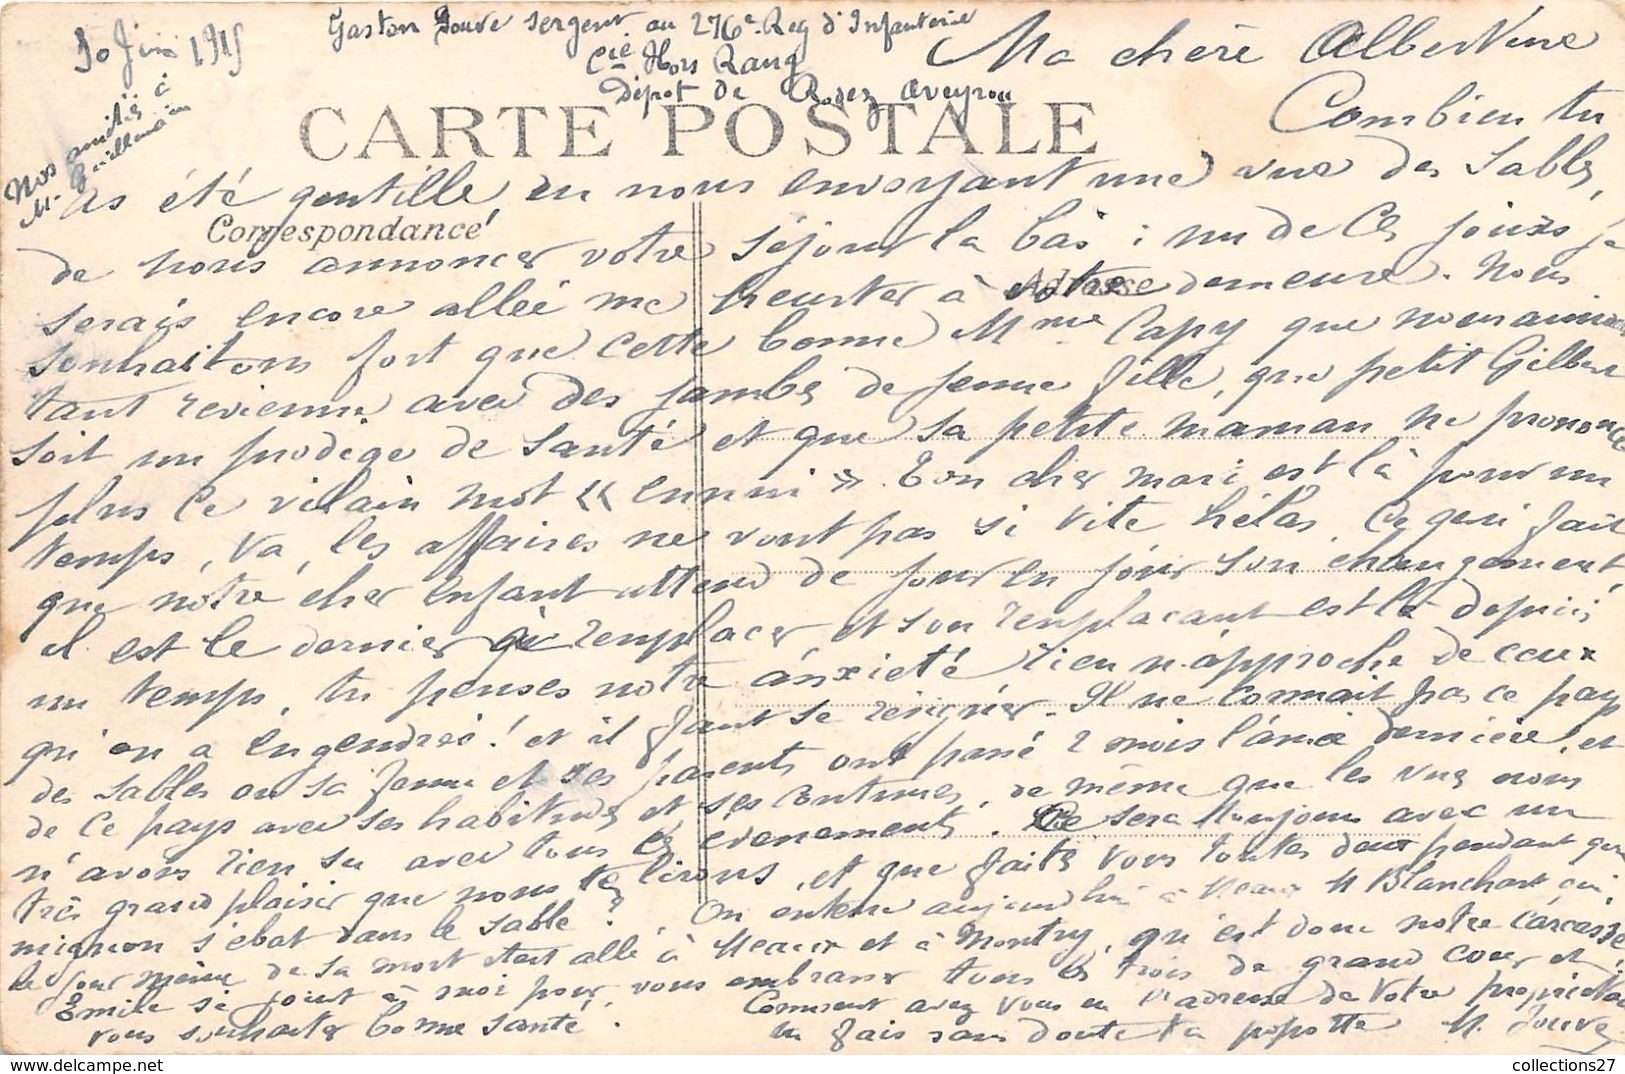 30 Juin 1915
Gaston Jouve sergent au 276e Reg d'Infanterie
Cie Hors Rang
Dépot de Rodez Aveyron
Nos amitiés à
Mr Guillemain
CARTE POSTALE
Correspondance
Adresse
Ma chère Albertine
Combien tu
as été gentille en nous envoyant une vue des Sables,
de nous annoncer votre séjour la bas : un de ces jours je
serais encore allée me heurter à votre demeure. Nous
souhaitons fort que cette bonne Mme Capy que nous aimons
tant revienne avec des jambes de jeune fille, que petit Gilbert
soit un prodige de santé et que sa petite maman ne prononce
plus ce vilain mot « ennui ». Ton cher mari est là pour un
temps, va, les affaires ne vont pas si vite hélas. Ce qui fait
que notre cher enfant attend de jour en jour son changement,
il est le dernier à remplacer et son remplaçant est là depuis
un temps, tu penses notre anxiété rien n'approche de ceux
qu'on a engendrés ! et il faut se résigner. Il ne connait pas ce pays
des Sables ou sa femme et ses parents ont passé 2 mois l'année dernière, et
de ce pays avec ses habitudes et ses coutumes, de même que les vues nous
n'avons rien su avec tous ces évènements. Ce sera toujours avec un
très grand plaisir que nous te lirons, et que faites vous toutes deux pendant que
mignon s'ebat dans le sable ? On enterre aujourd'hui à Meaux M Blanchart qui
le jour même de sa mort était allé à Meaux et à Montry, qu'est donc notre carcasse !
Emile se joint à moi pour vous embrasser tous les trois de grand cœur et
vous souhaiter bonne santé. Comment avez vous eu l'adresse de votre propriétaire
tu fais sans doute ta popotte M. Jouve
collections27